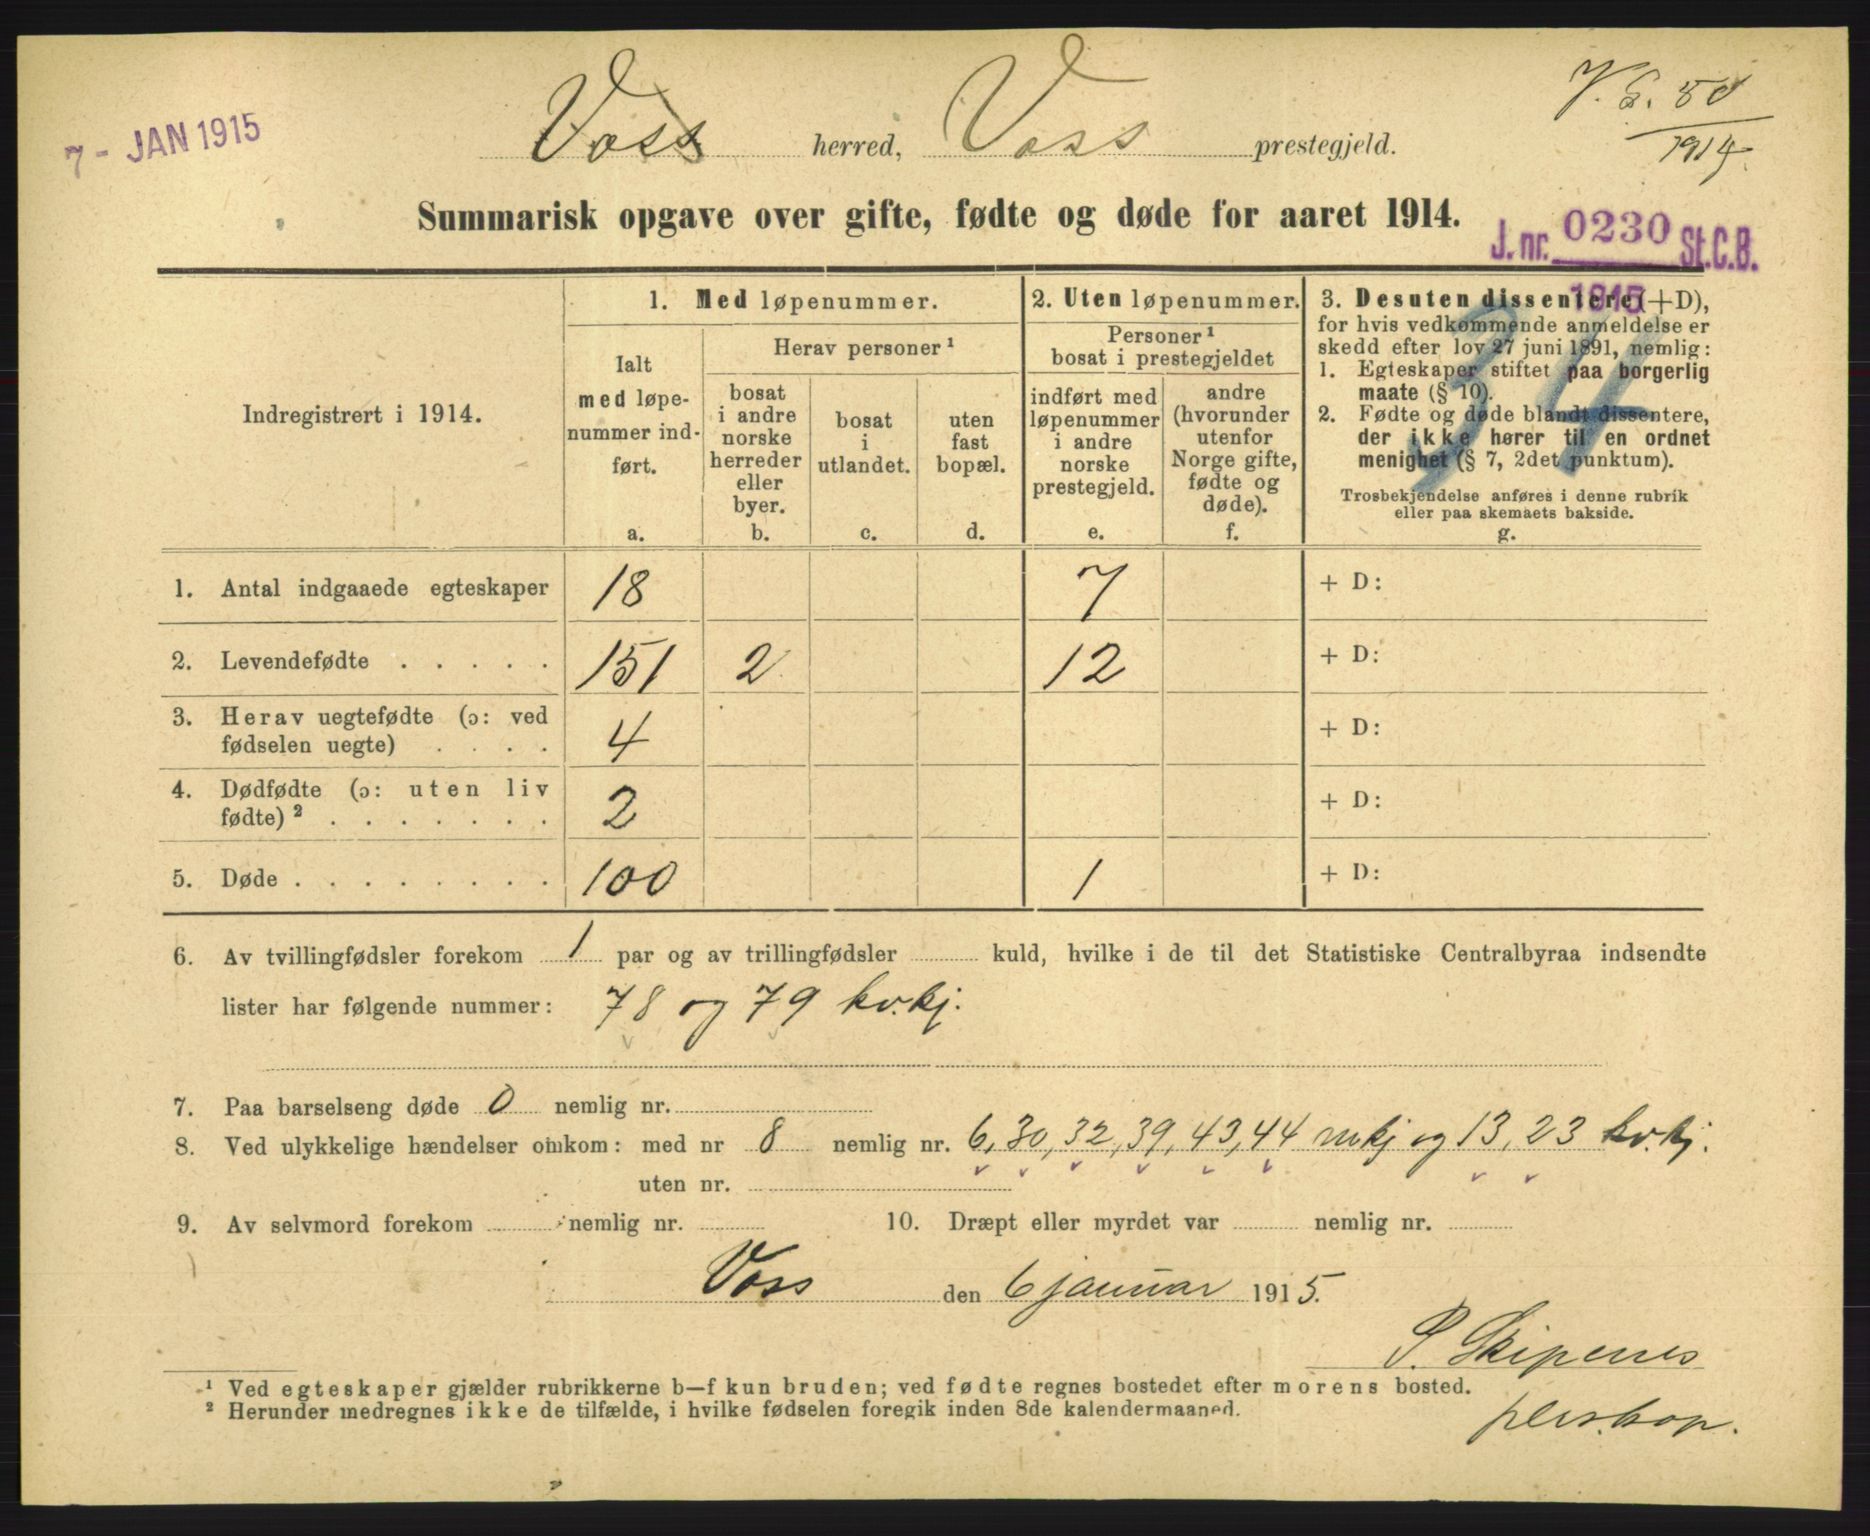 7 - JAN 1915
Voss herred, Voss prestegjeld.
1914.
Summarisk opgave over gifte, fødte og døde for aaret 1914.
J. nr. 0230 St.C.B.
1915
34
Indregistrert i 1914.
1. Med løpenummer.
Ialt
med løpe-
nummer ind-
ført.
a.
Herav personer ¹
bosat
i andre
norske
herreder
eller
byer.
b.
bosat
i
utlandet.
c.
uten
fast
bopæl.
d.
2. Uten løpenummer.
Personer ¹
bosat i prestegjeldet
indført med
løpenummer
i andre
norske
prestegjeld.
e.
andre
(hvorunder
utenfor
Norge gifte,
fødte og
døde).
f.
3. Desuten dissentere (+D),
for hvis vedkommende anmeldelse er
skedd efter lov 27 juni 1891, nemlig:
1. Egteskaper stiftet paa borgerlig
maate (§ 10).
2. Fødte og døde blandt dissentere,
der ikke hører til en ordnet
menighet (§ 7, 2det punktum).
Trosbekjendelse anføres i denne rubrik
eller paa skemaets bakside.
g.
1. Antal indgaaede egteskaper 18 7 + D:
2. Levendefødte . . . . . 151 2 12 + D:
3. Herav uegtefødte (ɔ: ved
fødselen uegte) . . . . 4 + D:
4. Dødfødte (ɔ: uten liv
fødte) ² . . . . . . . 2 + D:
5. Døde . . . . . . . . 100 1 + D:
6. Av tvillingfødsler forekom 1 par og av trillingfødsler ........ kuld, hvilke i de til det Statistiske Centralbyraa indsendte
lister har følgende nummer: 78 og 79 kv.kj.
7. Paa barselseng døde 0 nemlig nr.
8. Ved ulykkelige hændelser omkom: med nr 8 nemlig nr. 6, 30, 32, 39, 43, 44 mkj og 13, 23 kv.kj.
uten nr.
9. Av selvmord forekom ........ nemlig nr. ........ 10. Dræpt eller myrdet var ........ nemlig nr. ........
Voss den 6 januar 1915.
P. Skipenes
pers.kap.
¹ Ved egteskaper gjælder rubrikkerne b—f kun bruden; ved fødte regnes bostedet efter morens bosted.
² Herunder medregnes ikke de tilfælde, i hvilke fødselen foregik inden 8de kalendermaaned.